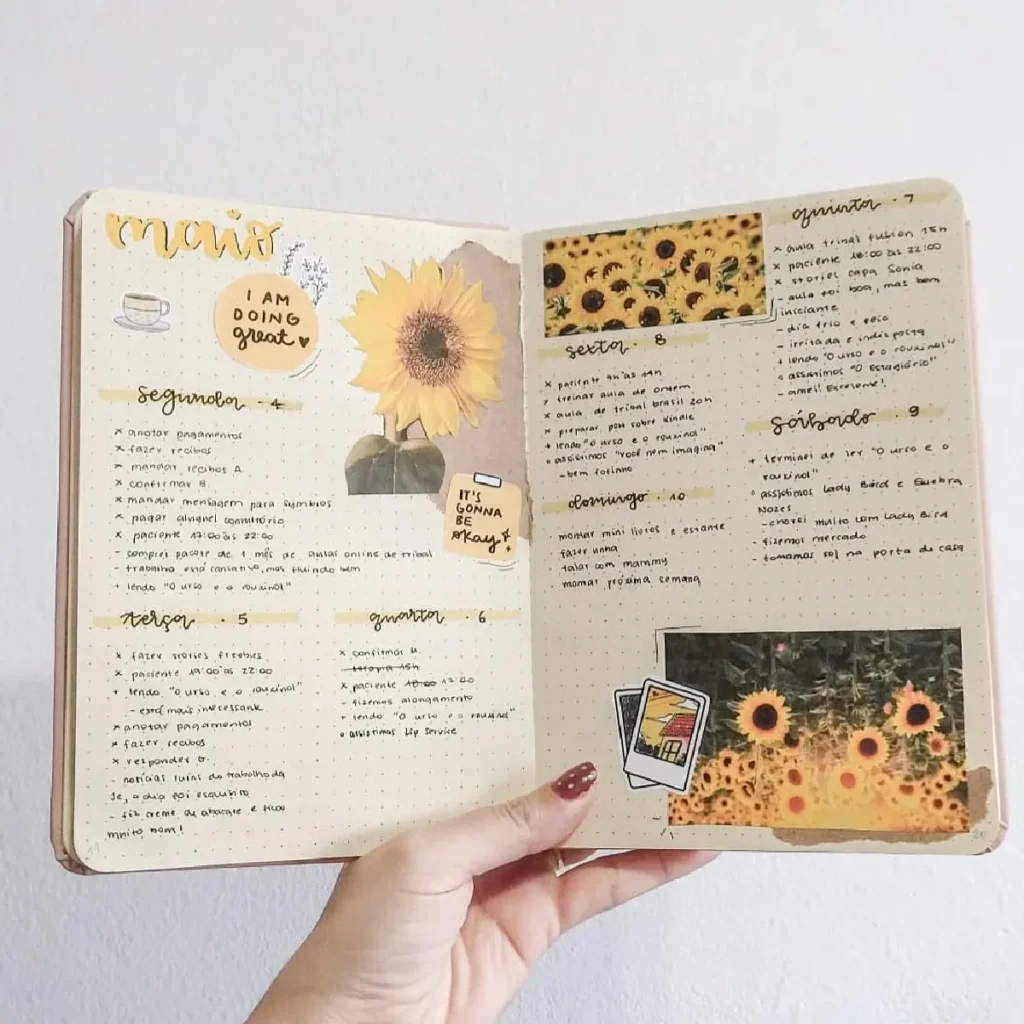 maio
I AM
DOING
great
segunda · 4
x anotar pagamentos
x fazer recibos
x mandar recibos A.
x confirmar B.
x mandar mensagem para
x pagar aluguel consultório
x paciente 17:00 às 22:00
- comprei pacote de 1 mês de aulas online de tribal
- trabalho está cansativo, mas fluindo bem
+ lendo "O urso e o rouxinol"
IT'S
GONNA
BE
okay
terça · 5
x fazer stories freebies
x paciente 19:00 às 22:00
+ lendo "O urso e o rouxinol"
- está mais interessante
x anotar pagamentos
x fazer recibos
x responder G.
- notícias ruins do trabalho da
Je, o dia foi esquisito
- fiz creme de abacate e ficou
muito bom!
quarta · 6
x confirmar
terapia 15h
x paciente 18:00 17:00
- fizemos alongamento
+ lendo "O urso e o rouxinol"
o assistimos Lip Service
quinta · 7
x aula tribal fusion 15h
x paciente 18:00 às 22:00
x stories capa Sonia
- aula foi boa, mas bem
iniciante
- dia frio e feio
- irritada e indisposta
+ lendo "O urso e o rouxinol"
o assistimos "O Estagiário"
- amei! Excelente!
sexta · 8
x paciente às 14h
treinar aula de ontem
x aula de tribal brasil 20h
x preparar post sobre Kindle
+ lendo "O urso e o rouxinol"
o assistimos "você nem imagina"
- bem fofinho
sábado · 9
+ terminei de ler "O urso e o
rouxinol"
o assistimos Lady Bird e Quebra
Nozes
- chorei muito com Lady Bird
- fizemos mercado
- tomamos sol na porta de casa
domingo · 10
montar mini livros e estante
fazer unha
falar com mammy
montar próxima semana